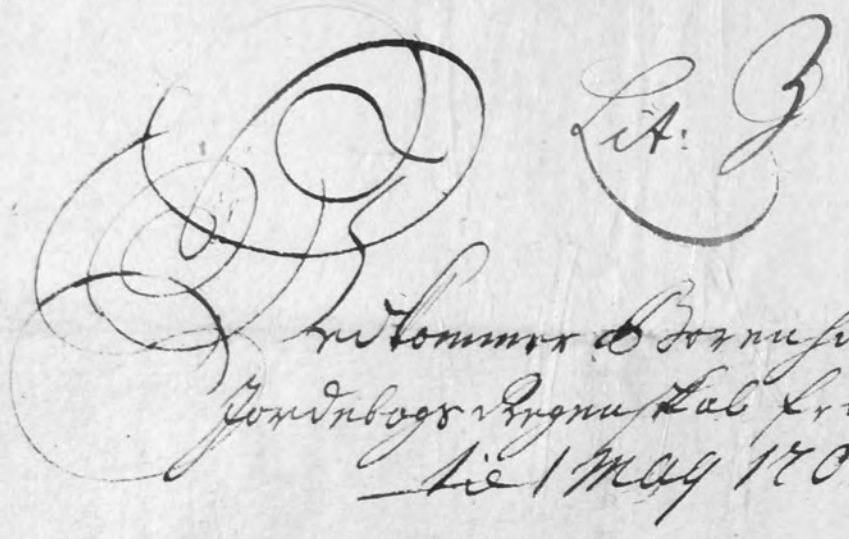 Lit: Z
Vedkommer Borenho
Jordebogs Regenskab fra
til 1 May 170